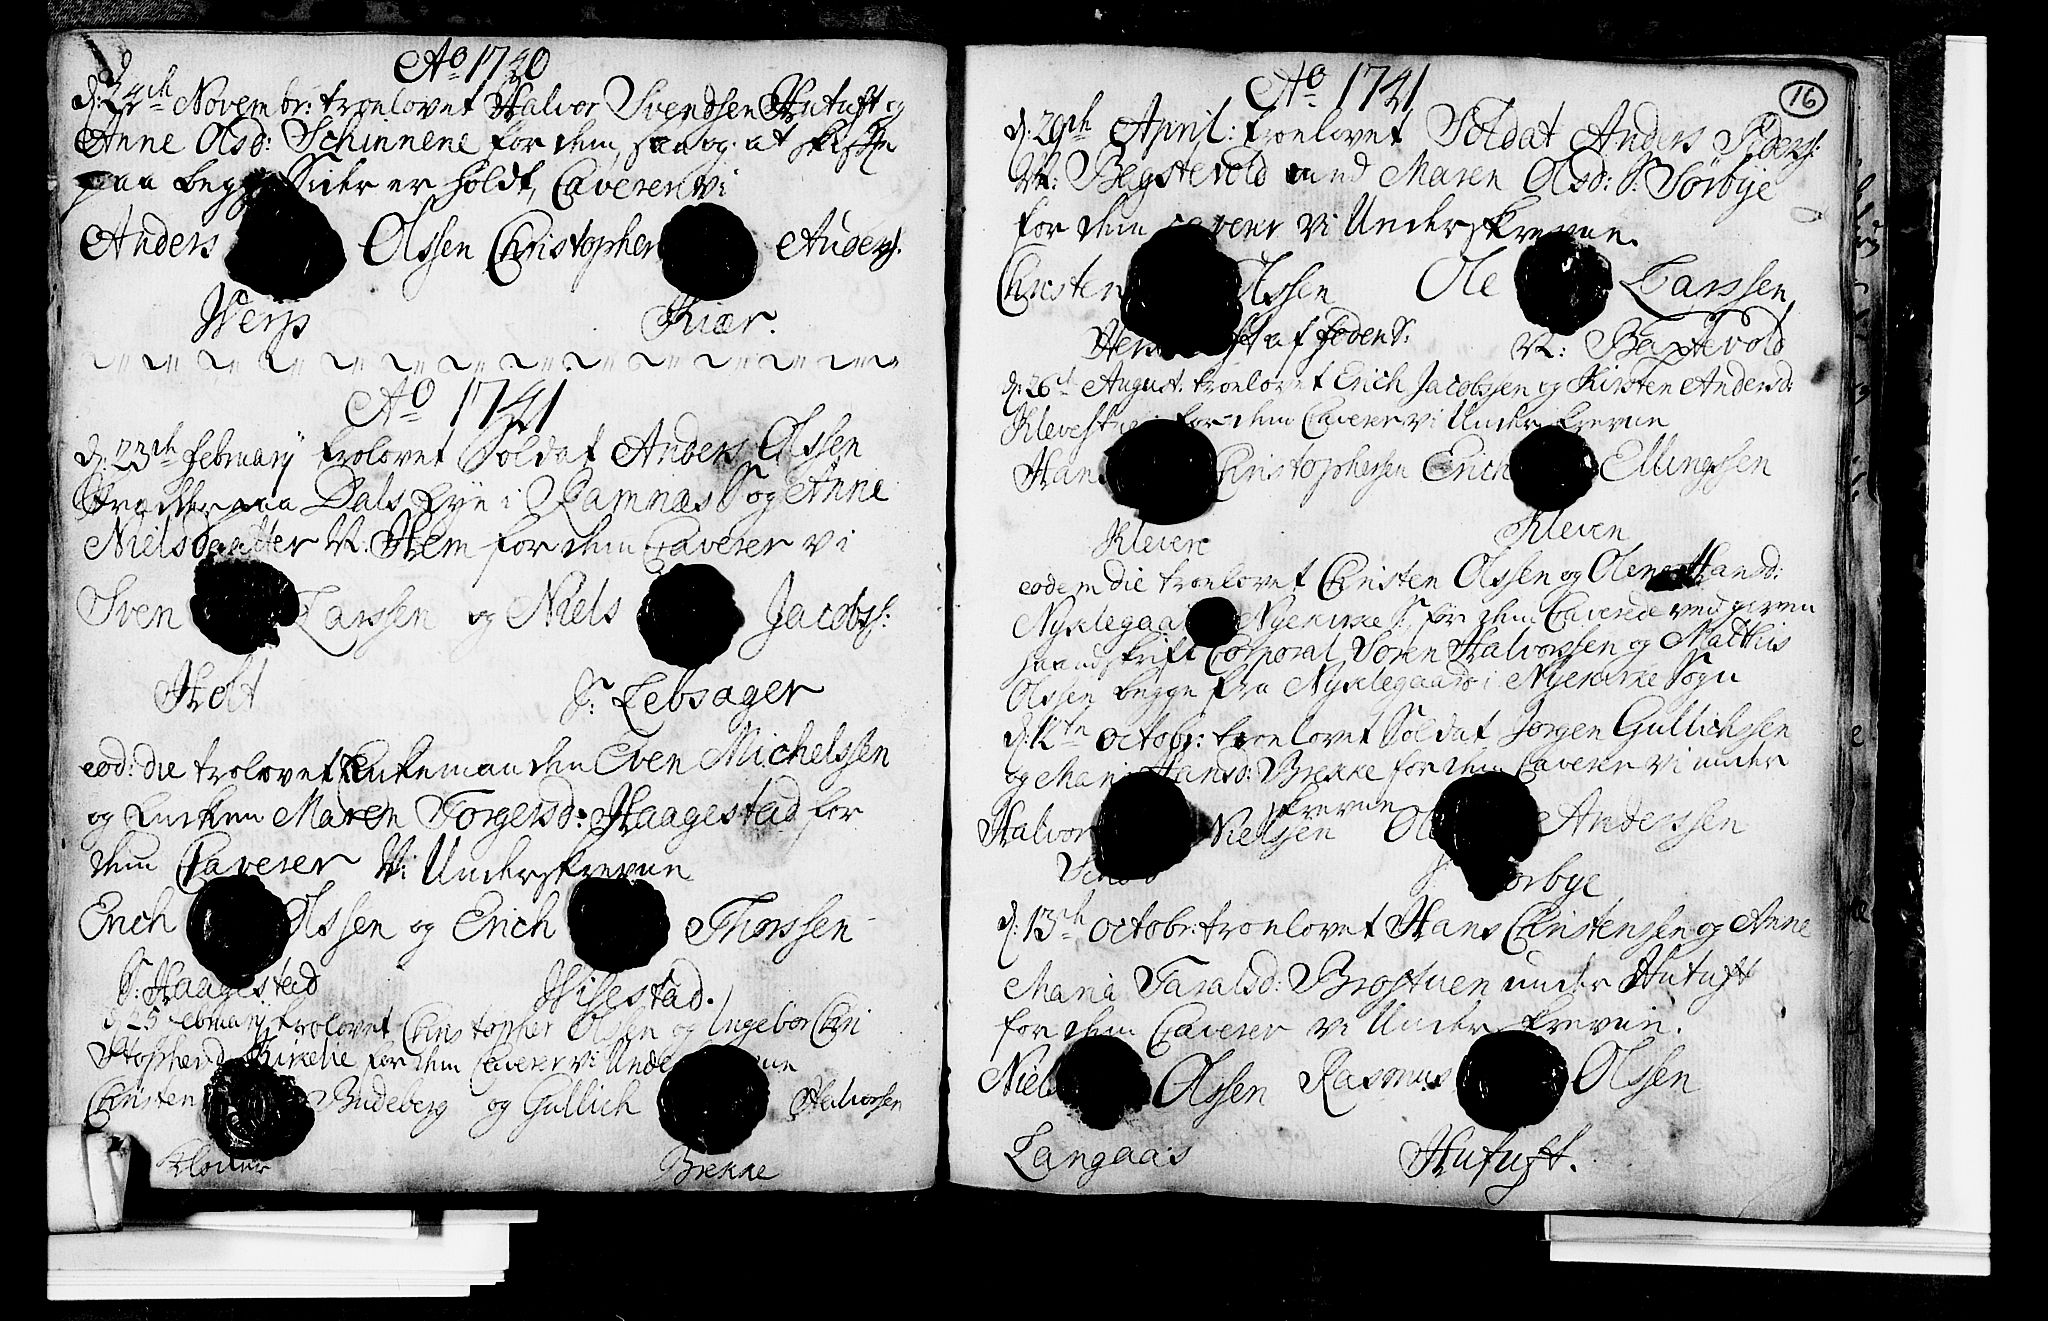 Ao 1740
d: 24th Novembr: troelovet Halvor Svendsen Hutuft og
Anne Olsd: Schinnene for dem, saa og at skifte
paa begge Sider er holdt, Caverer vi
Anders Olssen Christopher Anders:
Werp Kiær.
Ao 1741
d: 23th February trolovet Soldat Anders Olssen
paa Dals Eye i Ramnæs S og Anne
Niels Daatter N. Hem for dem Caverer vi
Sven Larssen og Niels Jacobss:
Holt S: Lebsager
eod: die trolovet Enkemanden Even Michelssen
og Enken Maren Torgersd: Haagestad for
dem Caverer Vi Underskrevne
Erich Olssen og Erich Thorssen
S: Haagestad Wilestad.
d 25 Februarij trolovet Christopher Olssen og Ingebor Chri
stophersd Birkelie for dem Caverer vi Unde
Christen Budeberg og Gullich Halvorssen
Brekke
16
Ao 1741
d: 29th April: troelovet Soldat Anders Peders:
N: Begstevold and Maren Olsd: S: Sørbye
for dem caverer vi Underskrevne.
Christen Olssen Ole Larssen
af Jeden S: N: Baxtevold
d: 26t August: troelovet Erich Jacobssen og Kirsten Andersd:
for dem Caverer vi Underskrevne
Hans Christophersen Erich Ellingssen
Kleven Kleven
eodem die troelovet Christen Olssen og Olene Hansd:
Nyklegaa Nyekirke S: for dem Caverede ved given
haandskrift Corporal Søren Halvorssen og Matthis
Olssen begge fra Nyklegaard i Nyekirke Sogn
d: 12te octobr: troelovet Soldat Jørgen Gullichssen
og Mari Hansd: Brekke for dem Caverer vi under
skrevne
Halvor Nielssen Ole Anderssen
Sørbye
d: 13th octobr: troelovet Hans Christensen og Anne
Maria Taralsd: Brostuen under Hutuft
for dem Caverer vi Underskrevne.
Niels Olssen Rasmus Olssen
Langaas Hutuft.